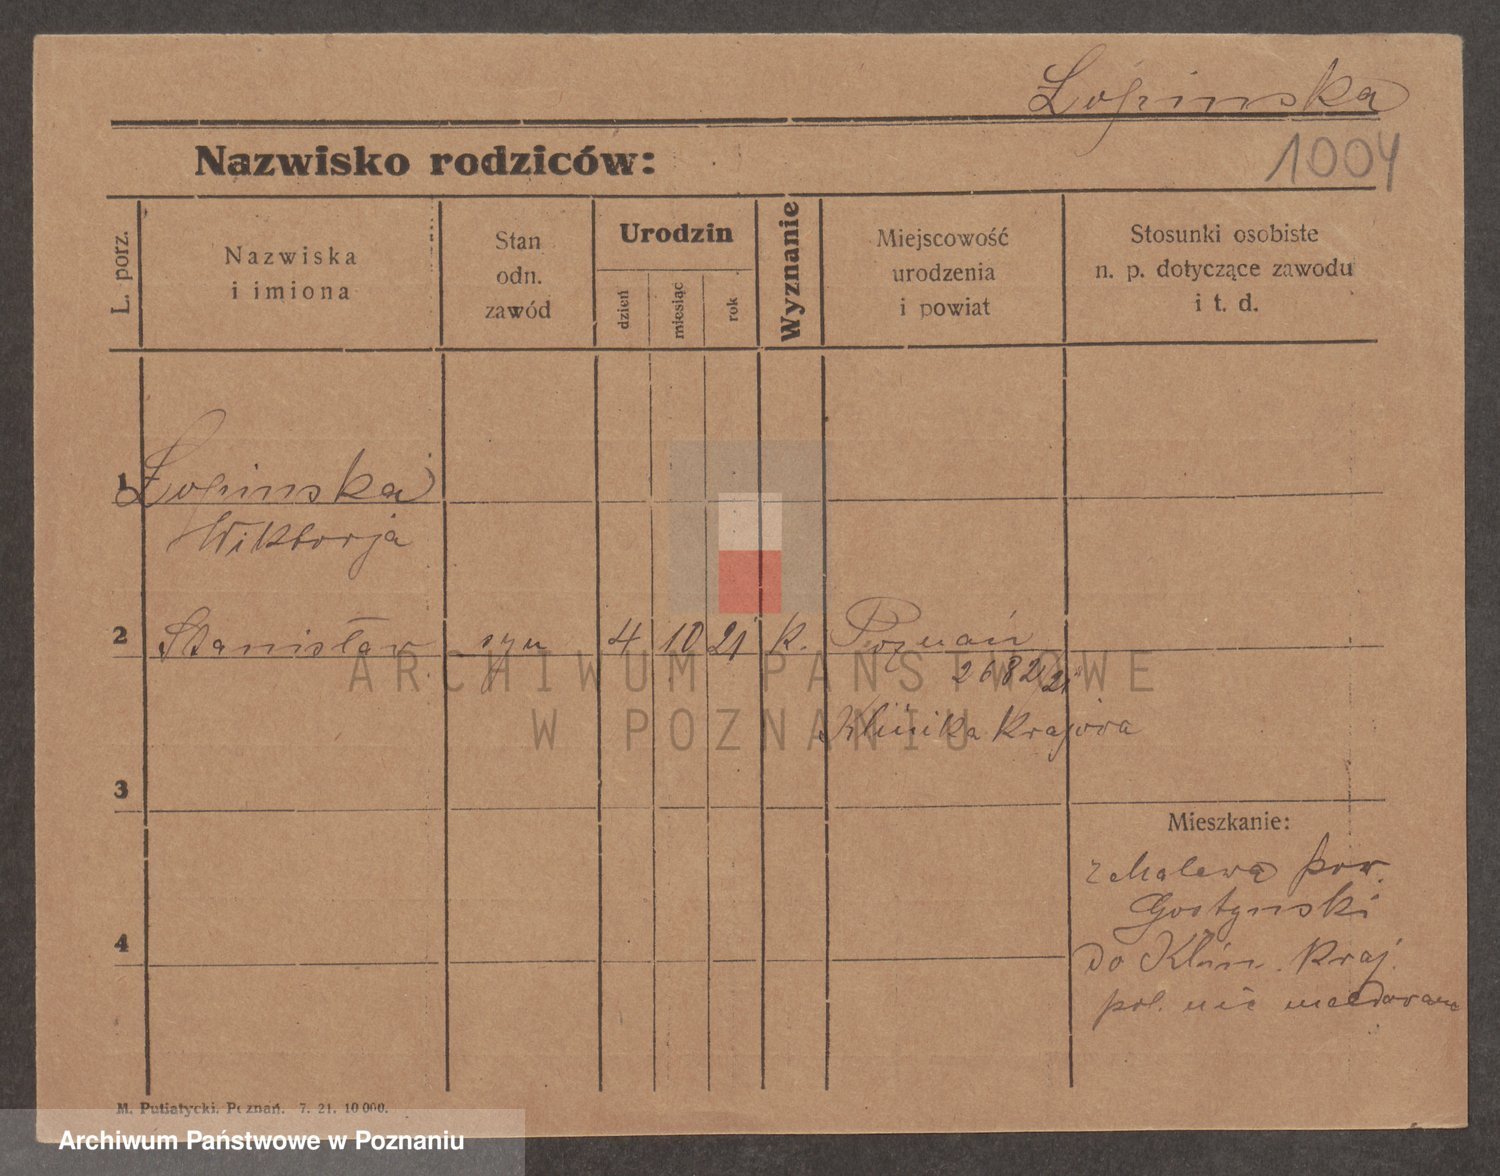 Łopinska
1004
Nazwisko rodziców:
L. porz.
Nazwiska
i imiona
Stan
odn.
zawód
Urodzin
dzień
miesiąc
rok
Wyznanie
Miejscowość
urodzenia
i powiat
Stosunki osobiste
n. p. dotyczące zawodu
i t. d.
1 Łopinska
Wiktorja
2 Stanisław syn 4 10 21 K. Poznań
2682/21
Klinika Krajowa
3
Mieszkanie:
z Malewa pow.
Gostynski
4
do Klin. Kraj.
pol. nie meldowane
M. Putiatycki, Poznań. 7. 21. 10 000.
ARCHIWUM PAŃSTWOWE
W POZNANIU
Archiwum Państwowe w Poznaniu